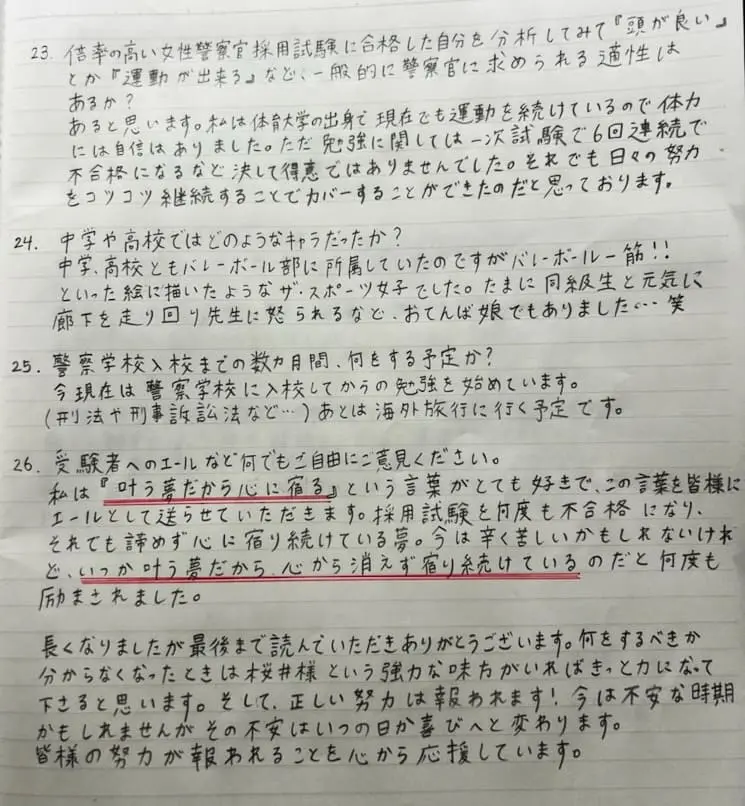 23. 倍率の高い女性警察官採用試験に合格した自分を分析してみて『頭が良い』
とか『運動が出来る』など、一般的に警察官に求められる適性は
あるか?
あると思います。私は体育大学の出身で現在でも運動を続けているので体力
には自信はありました。ただ勉強に関しては一次試験で6回連続で
不合格になるなど決して得意ではありませんでした。それでも日々の努力
をコツコツ継続することでカバーすることができたのだと思っております。
24. 中学や高校ではどのようなキャラだったか?
中学、高校ともバレーボール部に所属していたのですがバレーボール一筋!!
といった絵に描いたようなザ・スポーツ女子でした。たまに同級生と元気に
廊下を走り回り先生に怒られるなど、おてんば娘でもありました…笑
25. 警察学校入校までの数カ月間、何をする予定か?
今現在は警察学校に入校してからの勉強を始めています。
(刑法や刑事訴訟法など…)あとは海外旅行に行く予定です。
26. 受験者へのエールなど何でもご自由にご意見ください。
私は『叶う夢だから心に宿る』という言葉がとても好きで、この言葉を皆様に
エールとして送らせていただきます。採用試験を何度も不合格になり、
それでも諦めず心に宿り続けている夢。今は辛く苦しいかもしれないけれ
ど、いつか叶う夢だから、心から消えず宿り続けているのだと何度も
励まされました。
長くなりましたが最後まで読んでいただきありがとうございます。何をするべきか
分からなくなったときは桜井様という強力な味方がいればきっと力になって
下さると思います。そして、正しい努力は報われます!今は不安な時期
かもしれませんがその不安はいつの日か喜びへと変わります。
皆様の努力が報われることを心から応援しています。